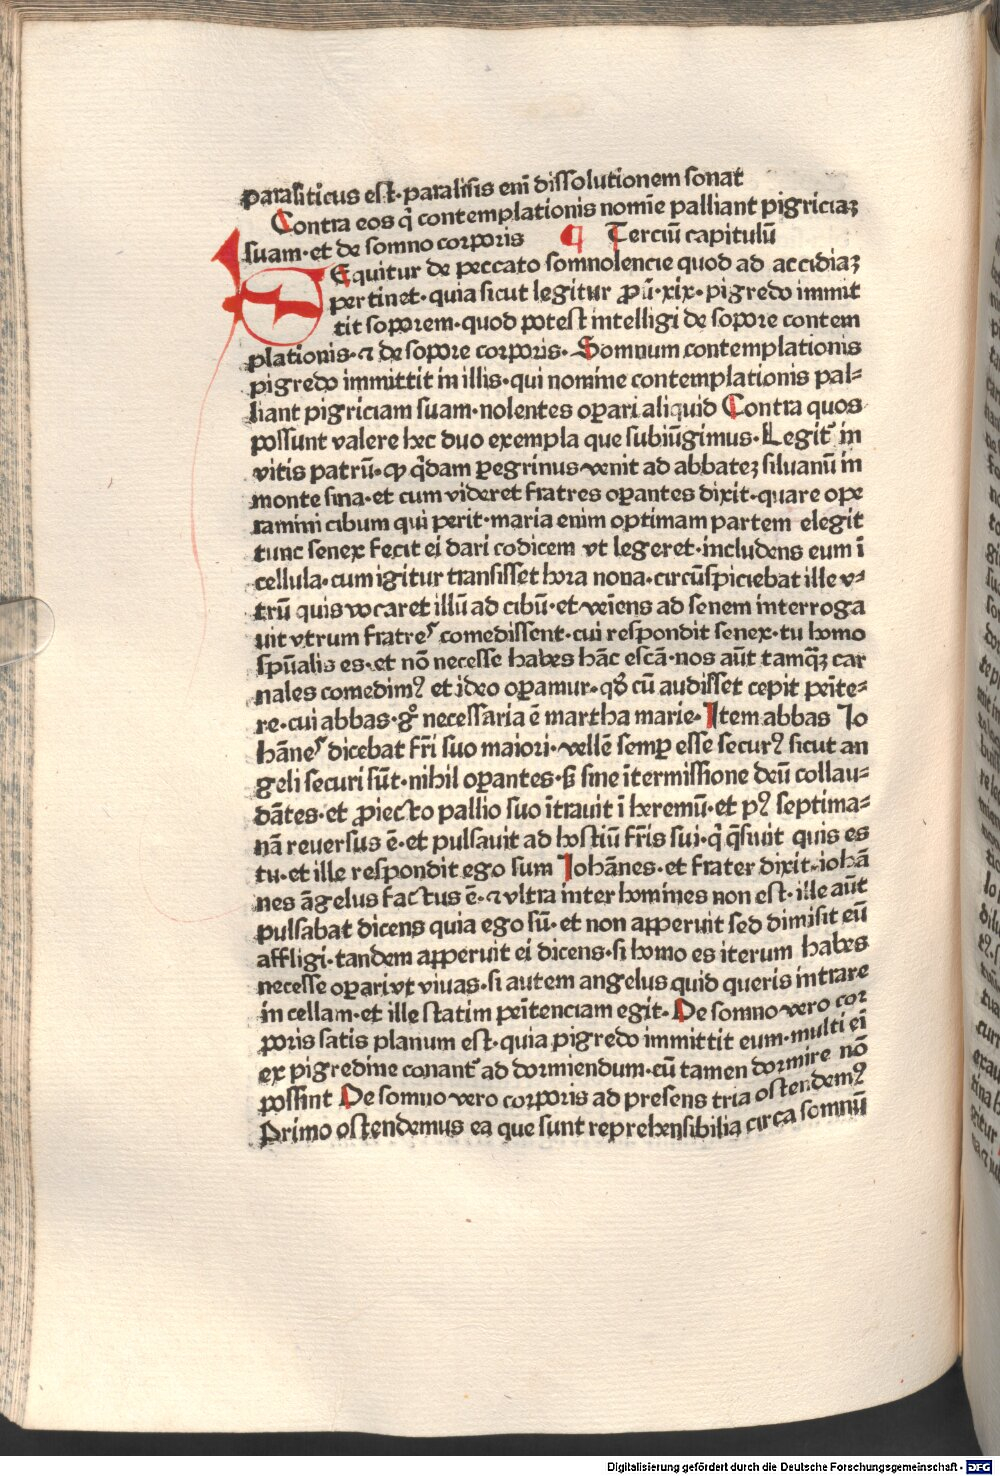 paraliticus est·paralisis eni̅ dissolutionem sonat
Contra eos q̇ contemplationis nomi̅e palliant pigriciaꝫ
suam·et de somno corporis ¶ Terciu̅ capitulu̅
SEquitur de peccato somnolencie quod ad accidiaꝫ
pertinet·quia sicut legitur ꝓu̅·xix·pigredo immit
tit soporem·quod potest intelligi de sopore contem
plationis·⁊ de sopore corporis·Somnum contemplationis
pigredo immittit in illis·qui nomine contemplationis pal⸗
liant pigriciam suam·nolentes oꝑari aliquid Contra quos
possunt valere hec duo exempla que subiu̅gimus·Legit᷑ in
vitis patru̅·ꝙ q̇dam ꝑegrinus venit ad abbateꝫ siluanu̅ in
monte sina·et cum videret fratres oꝑantes dixit·quare ope
ramini cibum qui perit·maria enim optimam partem elegit
tunc senex fecit ei dari codicem vt legeret·includens eum i̅
cellula·cum igitur transisset hora nona·circu̅spiciebat ille v⸗
tru̅ quis vocaret illu̅ ad cibu̅·et ve̅iens ad senem interroga
uit vtrum fratres comedissent·cui respondit senex·tu homo
spu̅alis es·et no̅ necesse habes ha̅c esca̅·nos au̅t tamq̅ꝫ car
nales comedimꝰ et ideo oꝑamur·qð cu̅ audisset cepit pe̅ite⸗
re·cui abbas·gͦ necessaria e̅ martha marie·Item abbas Io
ha̅nes dicebat fr̅i suo maiori·velle̅ semꝑ esse securꝰ sicut an
geli securi su̅t·nihil oꝑantes·s̅ sine i̅termissione deu̅ collau⸗
da̅tes·et ꝓiecto pallio suo i̅trauit i̅ heremu̅·et pꝰ septima⸗
na̅ reuersus e̅·et pulsauit ad hostiu̅ fr̅is sui·q̇ q̅siuit quis es
tu·et ille respondit ego sum Ioha̅nes·et frater dixit·ioha̅
nes a̅gelus factus e̅·⁊ vltra inter homines non est·ille au̅t
pulsabat dicens quia ego su̅·et non apperuit sed dimisit eu̅
affligi·tandem apperuit ei dicens·si homo es iterum habes
necesse oꝑari vt viuas·si autem angelus quid queris intrare
in cellam·et ille statim pe̅itenciam egit·De somno vero cor
poris satis planum est·quia pigredo immittit eum·multi ei̅
ex pigredine conant᷑ ad dormiendum·cu̅ tamen dormire no̅
possint De somno vero corporis ad presens tria ostendemꝰ
Primo ostendemus ea que sunt reprehensibilia circa somnu̅
Digitalisierung gefördert durch die Deutsche Forschungsgemeinschaft - DFG